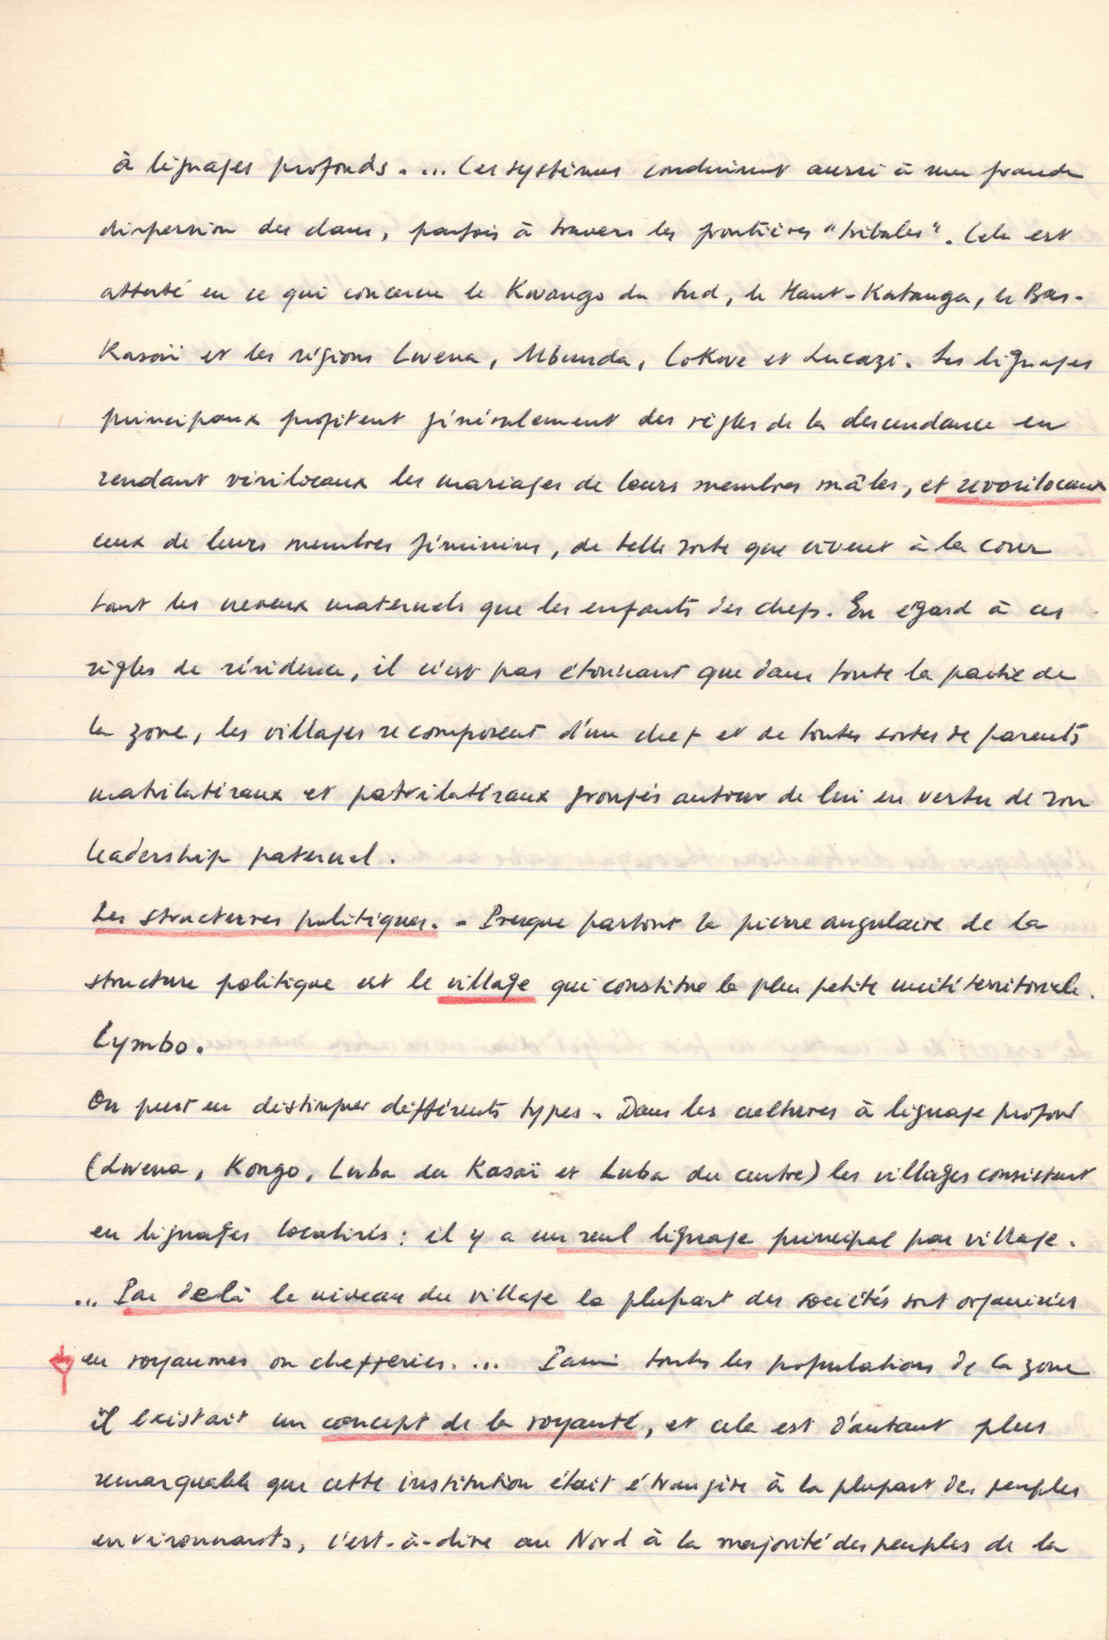 à lignages profonds. ... Ces systèmes conduisent aussi à une grande
dispersion des clans, parfois à travers les frontières "tribales". Cela est
attesté en ce qui concerne le Kwango du Sud, le Haut-Katanga, le Bas-
Kasaï et les régions Lwena, Mbunda, Cokwe et Lucazi. Les lignages
principaux profitent généralement des règles de la descendance en
rendant virilocaux les mariages de leurs membres mâles, et uxorilocaux
ceux de leurs membres féminins, de telle sorte que vivent à la cour
tant les neveux maternels que les enfants des chefs. En égard à ces
règles de résidence, il n'est pas étonnant que dans toute la partie de
la zone, les villages se composent d'un chef et de toutes sortes de parents
matrilatéraux et patrilatéraux groupés autour de lui en vertu de son
leadership paternel.
Les structures politiques. - Presque partout la pierre angulaire de la
structure politique est le village qui constitue la plus petite unité territoriale.
Cymbo.
On peut en distinguer différents types. Dans les cultures à lignage profond
(Lwena, Kongo, Luba du Kasaï et Luba du centre) les villages consistent
en lignages localisés : il y a un seul lignage principal par village.
... Par delà le niveau du village la plupart des sociétés sont organisées
en royaumes ou chefferies. ... Parmi toutes les populations de la zone
il existait un concept de la royauté, et cela est d'autant plus
remarquable que cette institution était étrangère à la plupart des peuples
environnants, c'est-à-dire au Nord à la majorité des peuples de la